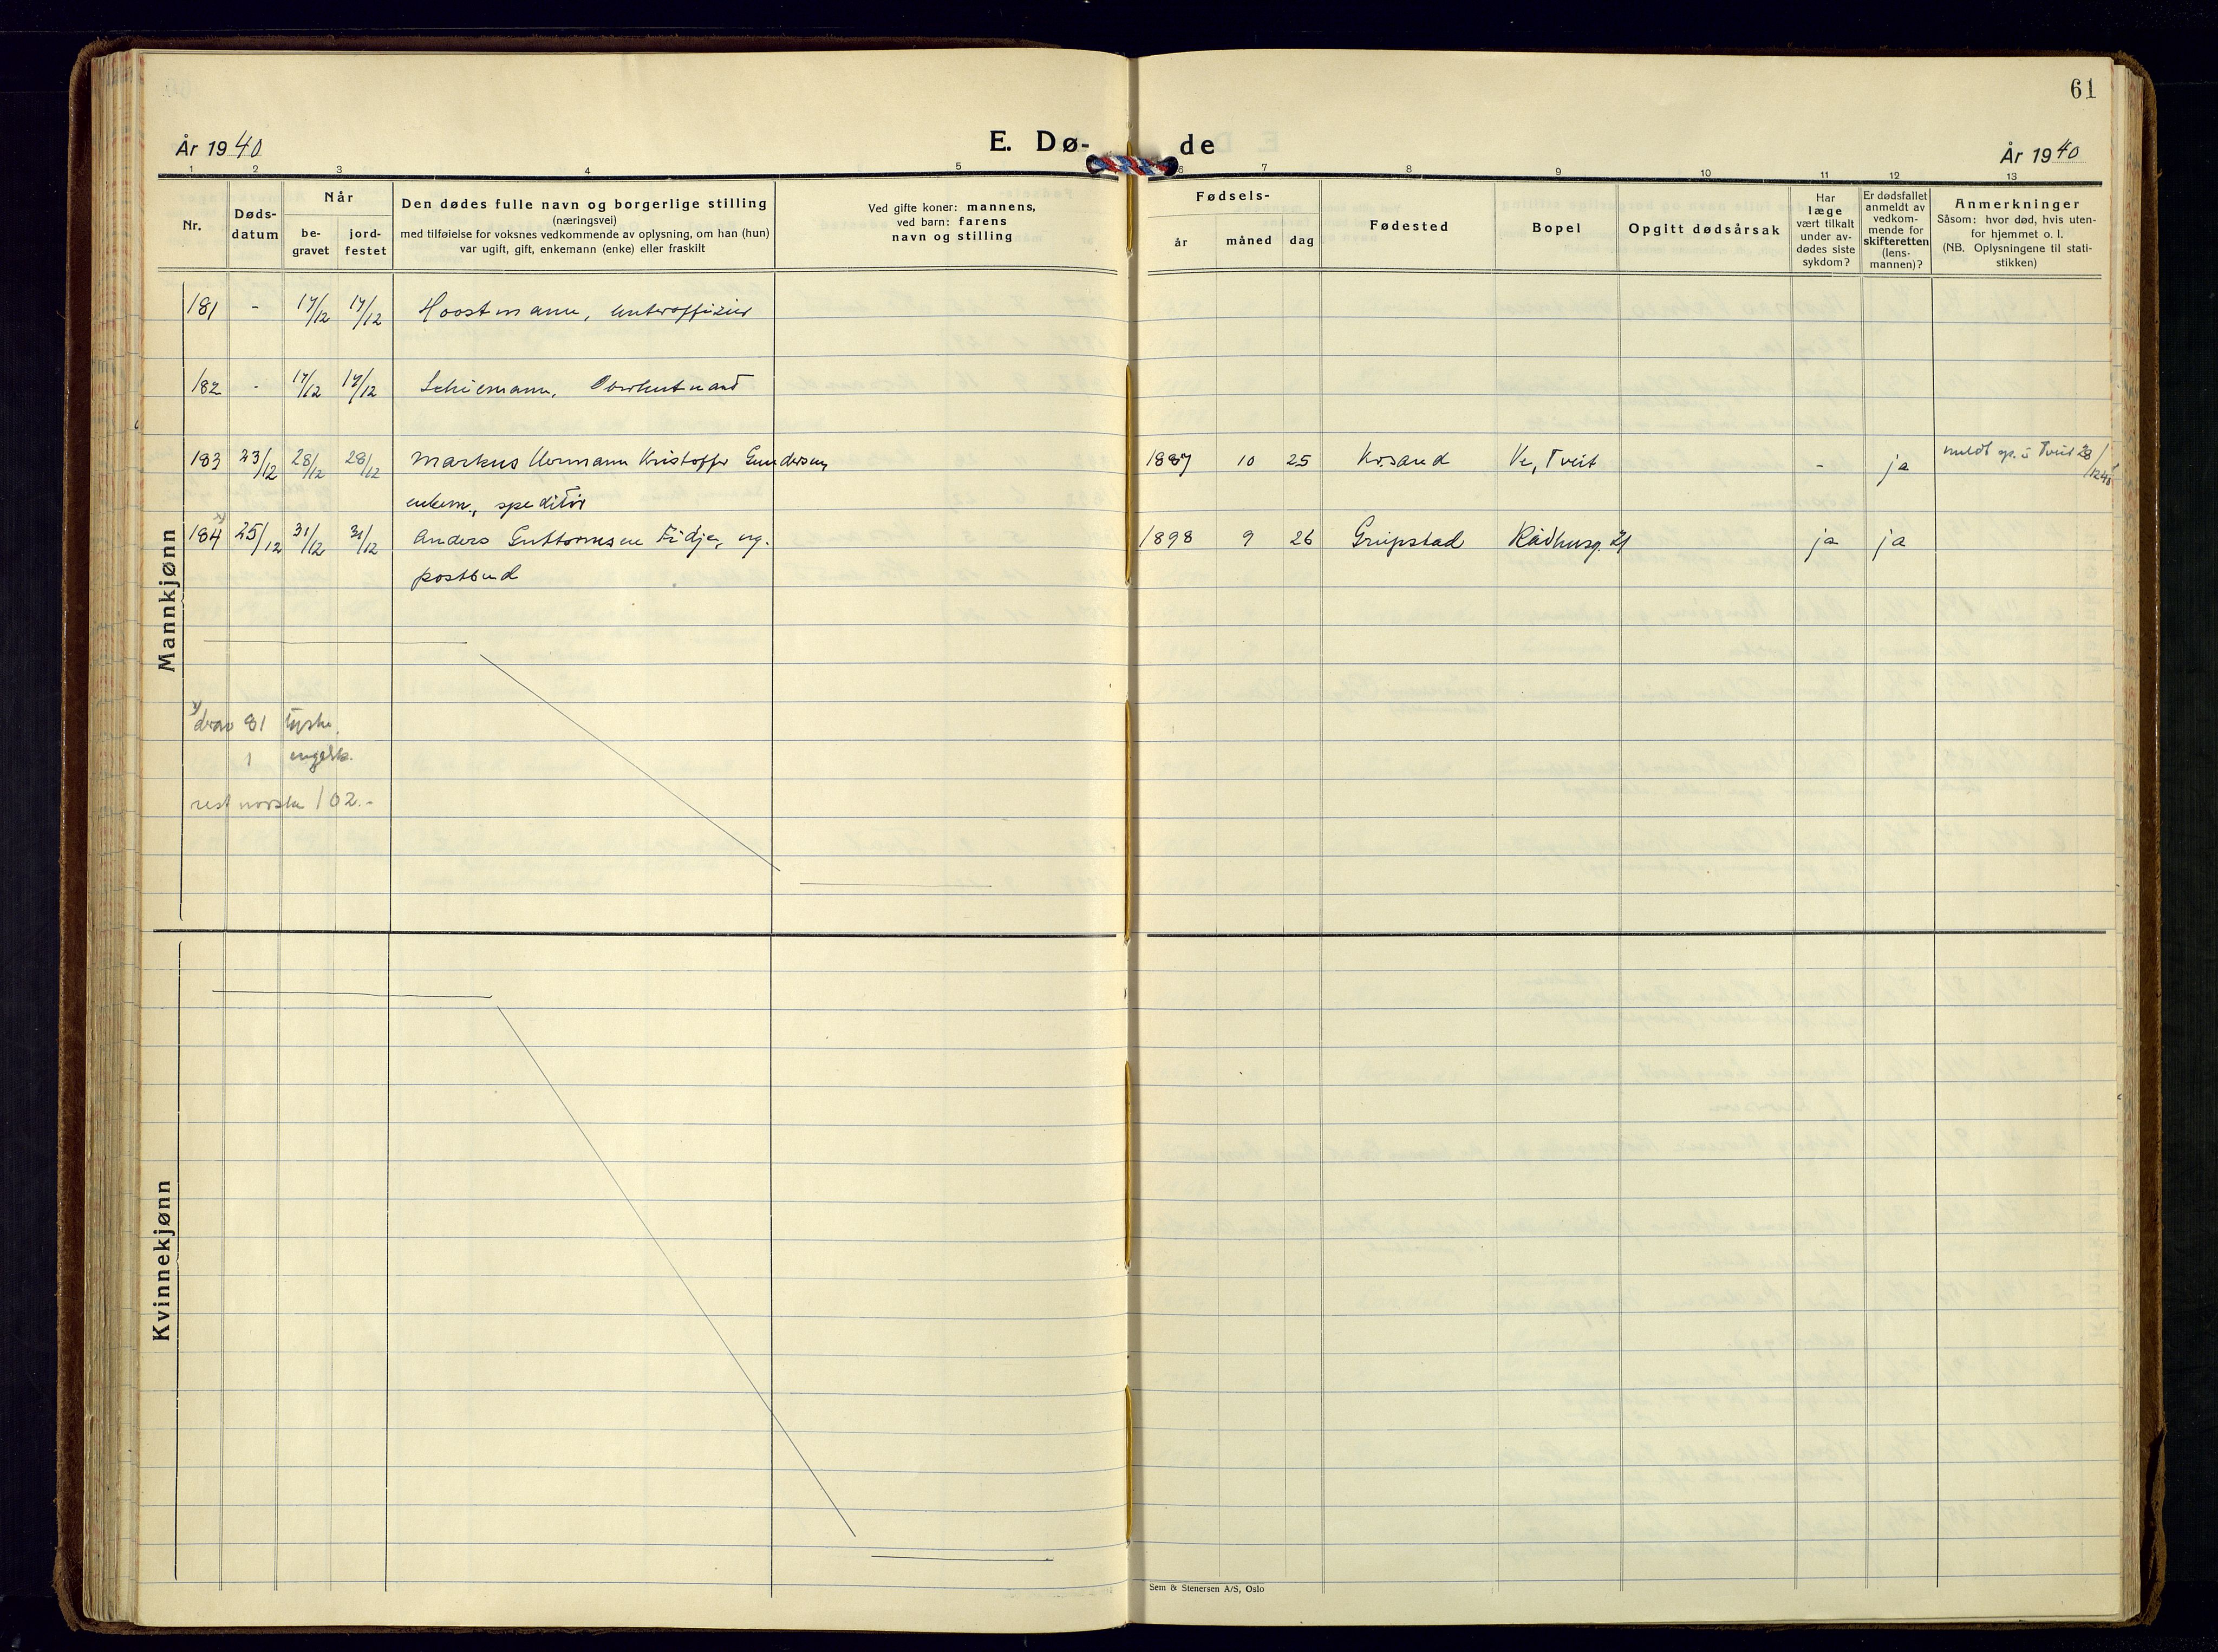 61
År 1940
E. Dø-
de
År 1940
1 2 3 4 5 6 7 8 9 10 11 12 13
Nr.
Døds-
datum
Når
be-
gravet
jord-
festet
Den dødes fulle navn og borgerlige stilling
(næringsvei)
med tilføielse for voksnes vedkommende av oplysning, om han (hun)
var ugift, gift, enkemann (enke) eller fraskilt
Ved gifte koner: mannens,
ved barn: farens
navn og stilling
Fødsels-
år måned dag
Fødested
Bopel
Opgitt dødsårsak
Har
læge
vært tilkalt
under av-
dødes siste
sykdom?
Er dødsfallet
anmeldt av
vedkom-
mende for
skifteretten
(lens-
mannen)?
Anmerkninger
Såsom: hvor død, hvis uten-
for hjemmet o. l.
(NB. Oplysningene til stati-
stikken)
Mannkjønn
181 - 17/12 17/12 Hoostmann, Unteroffizier
182 - 17/12 17/12 Schiemann,
183 23/12 28/12 28/12 Markus Hermann Kristoffer Gundersen 1887 10 25 Kr.sand Ve, Tveit - ja meldt sp. i Tveit
enkem., speditør
184 x) 25/12 31/12 31/12 Anders Guttormsen Fidje, ug. 1898 9 26 Greipstad Rådhusg. 21 ja ja
postbud
x) derav 81 tyske.
1 engelsk.
rest norske 102.-
Kvinnekjønn
Sem & Stenersen A/S, Oslo